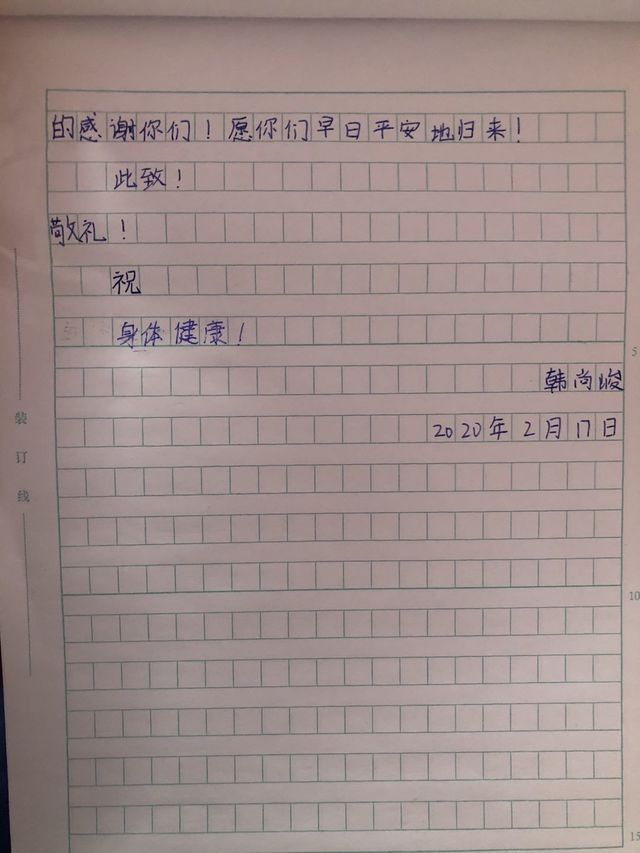 的感谢你们！愿你们早日平安地归来！
此致！
敬礼！
祝
身体健康！
5
韩尚峻
2020年2月17日
装订线
10
15